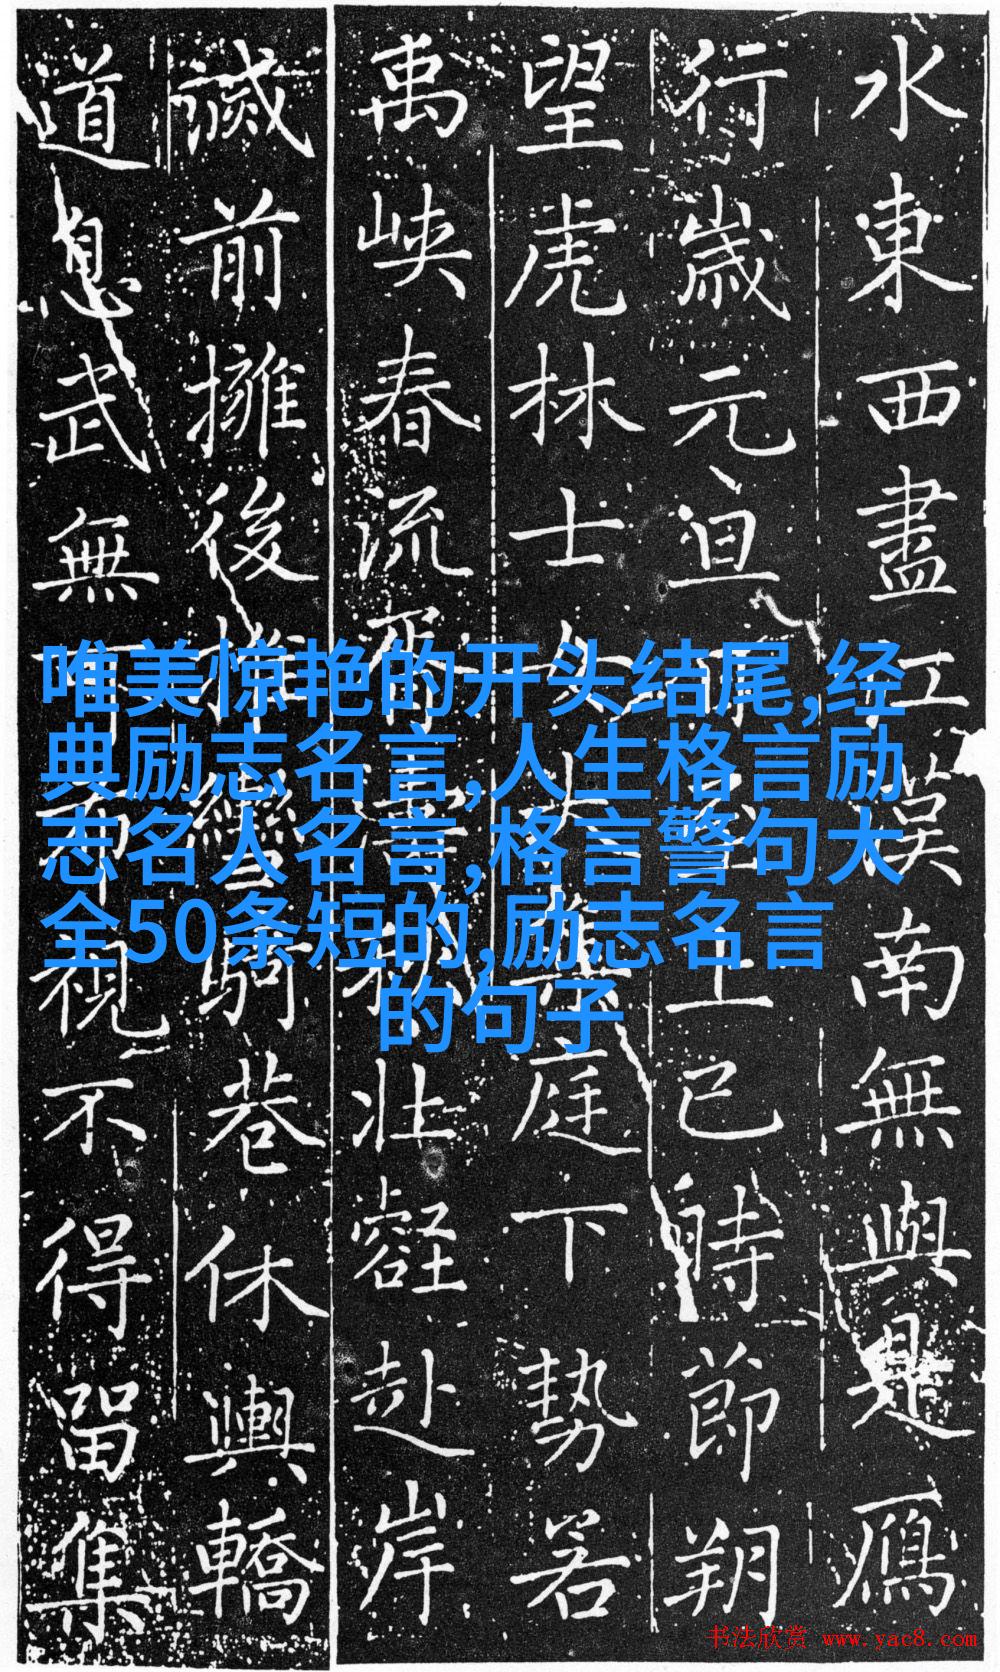 水東西盡江漢南無與是鴈
行歲元旦上巳時節朔
望虎林士女大集庭下勢若
禹峽春流胥濤秋壯壑赴岸
前擁後推駒巷休輿轎
道息武無視不得留集
唯美惊艳的开头结尾,经
典励志名言,人生格言励
志名人名言,格言警句大
全50条短的,励志名言
的句子
书法欣赏 www.yac8.com